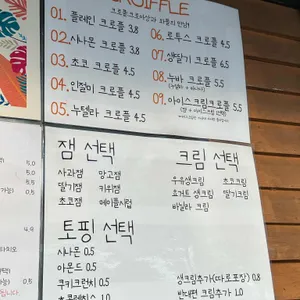 CROIFFLE
01. 플레인 크로플 3.8
02. 시나몬 크로플 3.8
03. 초코 크로플 4.5
04. 인절미 크로플 4.5
05. 누텔라 크로플 4.5
06. 로투스 크로플 4.5
07. 생딸기 크로플 4.5
08. 누바 크로플 5.5
09. 아이스크림크로플 5.5
잼 선택
사과잼 망고잼
딸기잼 키위잼
초코잼 메이플시럽
크림 선택
우유생크림 초코크림
요거트 생크림 딸기크림
바닐라 크림
토핑 선택
시나몬 0.5
아몬드 0.5
쿠키크런치 0.5
생크림추가(따로포장) 0.8
반대편 크림추가 1.0
5.0
5.5
4.9
5.5